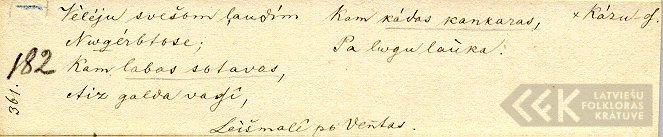 Vēlēju svešom ļaudīm
Nwgérbtose;
Kam labas sotavas,
Aiz galda vadī,
Kam kádas kankaras,
Pa lwgu laũka.
× Kázu-g.
182
361.
Leišmalī pō Veñtas.
LATVIEŠU
FOLKLORAS
KRĀTUVE